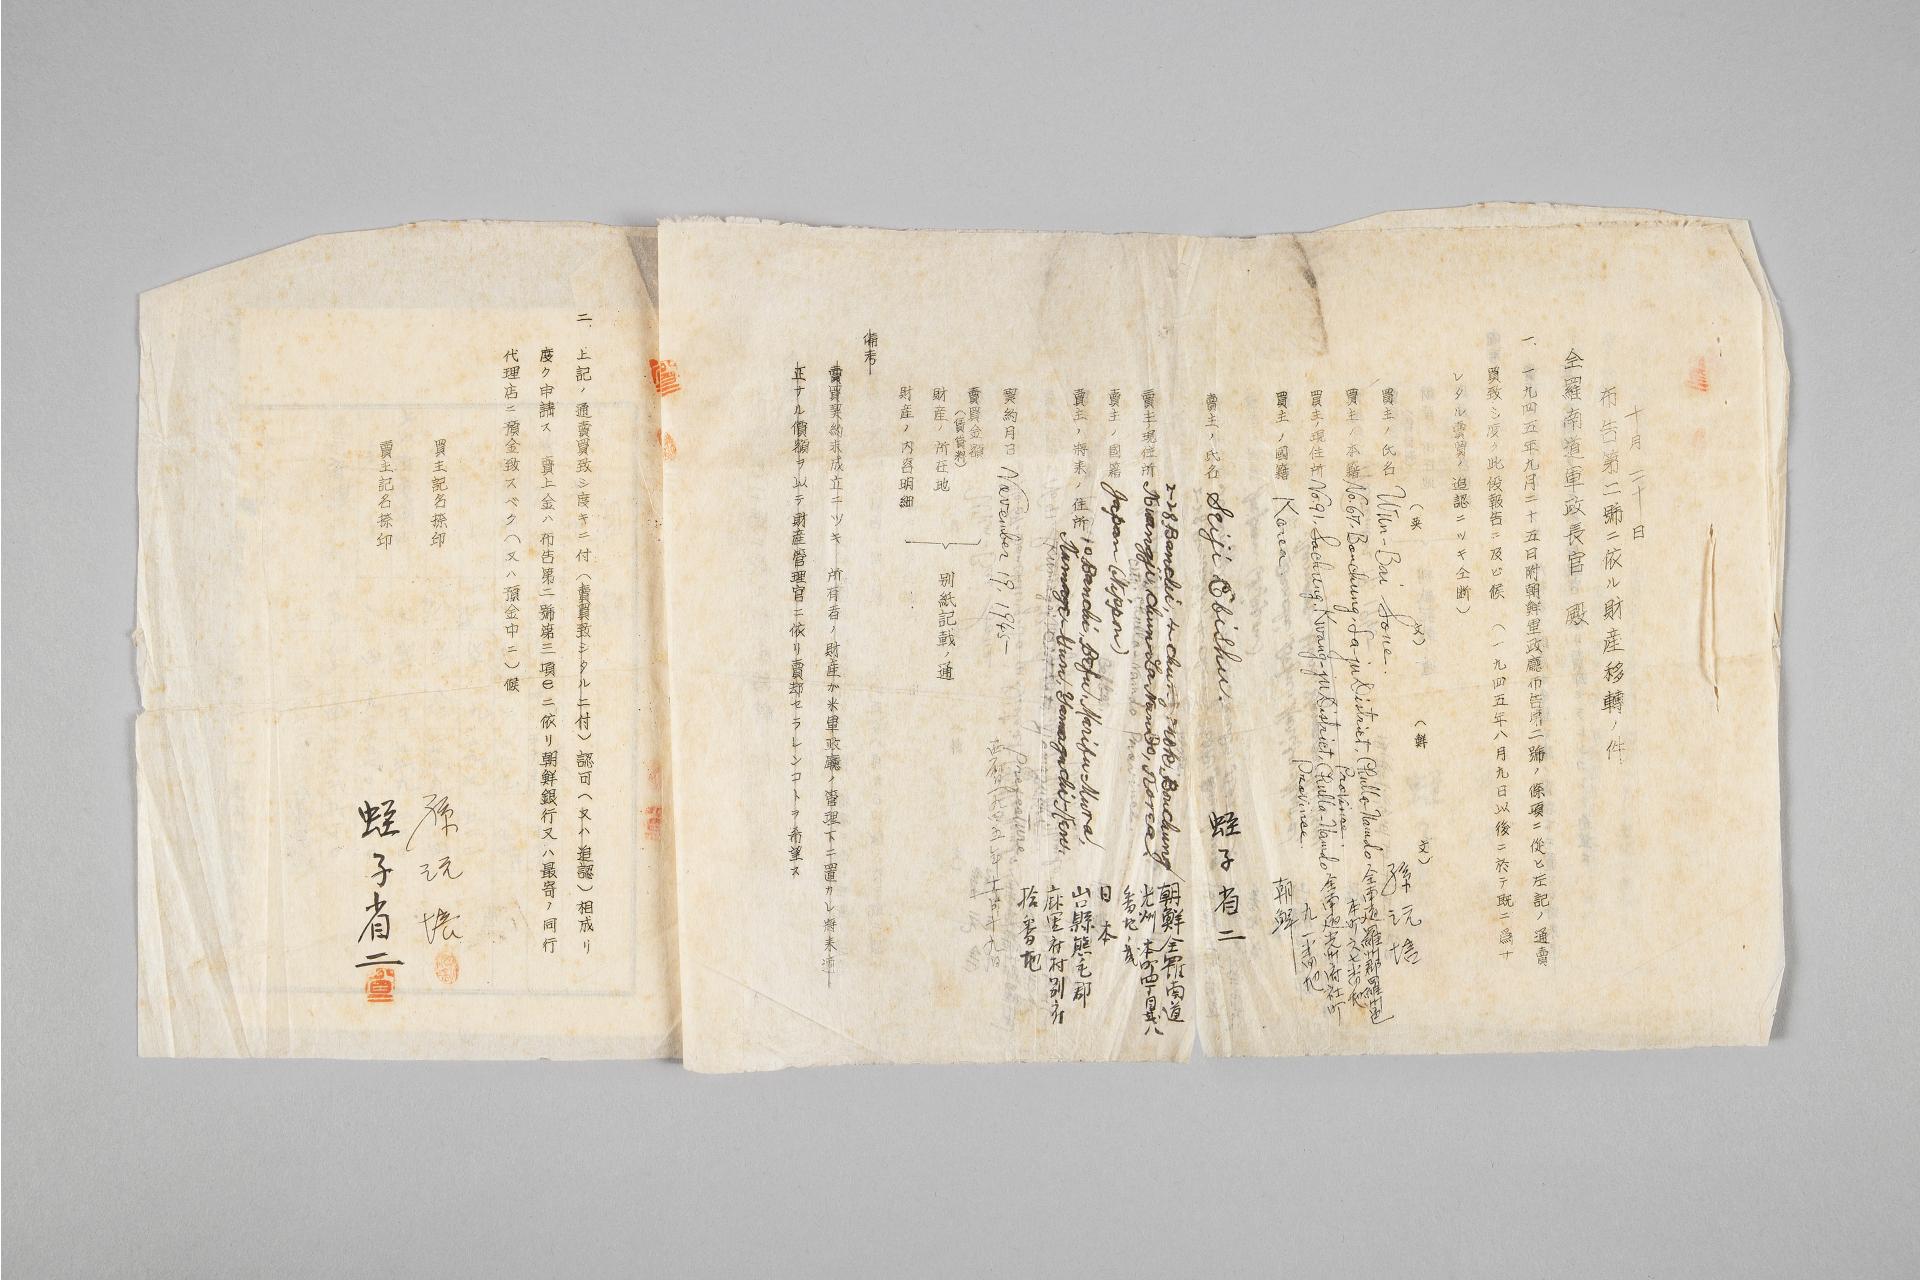 十月二十日
布告第二號ニ依ル財産移轉ノ件
全羅南道軍政長官 殿
一、一九四五年九月二十五日附朝鮮軍政廳布告第二號ノ條項ニ從ヒ左記ノ通賣
買致シ度ク此段報告ニ及ビ候 (一九四五年八月九日以後ニ於テ既ニ爲サ
レタル賣買ノ追認ニツキ
(英 文) (鮮 文)
買主ノ氏名 Wun-Bai Sone. 孫沅培
買主ノ本籍 No.67. Bonchung, La-ju District, Chulla-Namdo Province 全南道羅州郡羅州邑
本町六七番地
買主ノ現住所 No.91. Sachung, Kwang-ju District, Chulla-Namdo Province 全南道光州府社町
九一番地
買主ノ國籍 Korea 朝鮮
賣主ノ氏名 Seiji Ebishu. 蛭子省二
2-28, Banchi, 4-chung-mok, Bonchung 朝鮮全羅南道
賣主ノ現住所 Kwangju, Chunla Nando, Korea. 光州 本町四丁目貳八
番地ノ貳
賣主ノ國籍 Japan (Nippon) 日本
賣主ノ將來ノ住所 10, Banchi, Befu, Marifu-Mura, 山口縣熊毛郡
Kumage-Gun, Yamaguchi-Ken. 麻里府村別府
拾番地
契約月日 November 19. 1945 西曆一九四五年十一月十九日
賣買金額
(賃貸料)
財産ノ所在地 別紙記載ノ通
財産ノ内容明細
備考
賣買契約未成立ニツキ 所有者ノ財産ガ米軍政廳ノ管理下ニ置カレ將來適
正ナル價額ヲ以テ財産管理官ニ依リ賣却セラレンコトヲ希望ス
二、上記ノ通賣買致シ度キニ付(賣買致シタルニ付)認可(又ハ追認)相成リ
度ク申請ス 賣上金ハ布告第二號第三項eニ依リ朝鮮銀行又ハ最寄ノ同行
代理店ニ預金致スベク(又ハ預金中ニ)候
買主記名捺印 孫沅培
賣主記名捺印 蛭子省二